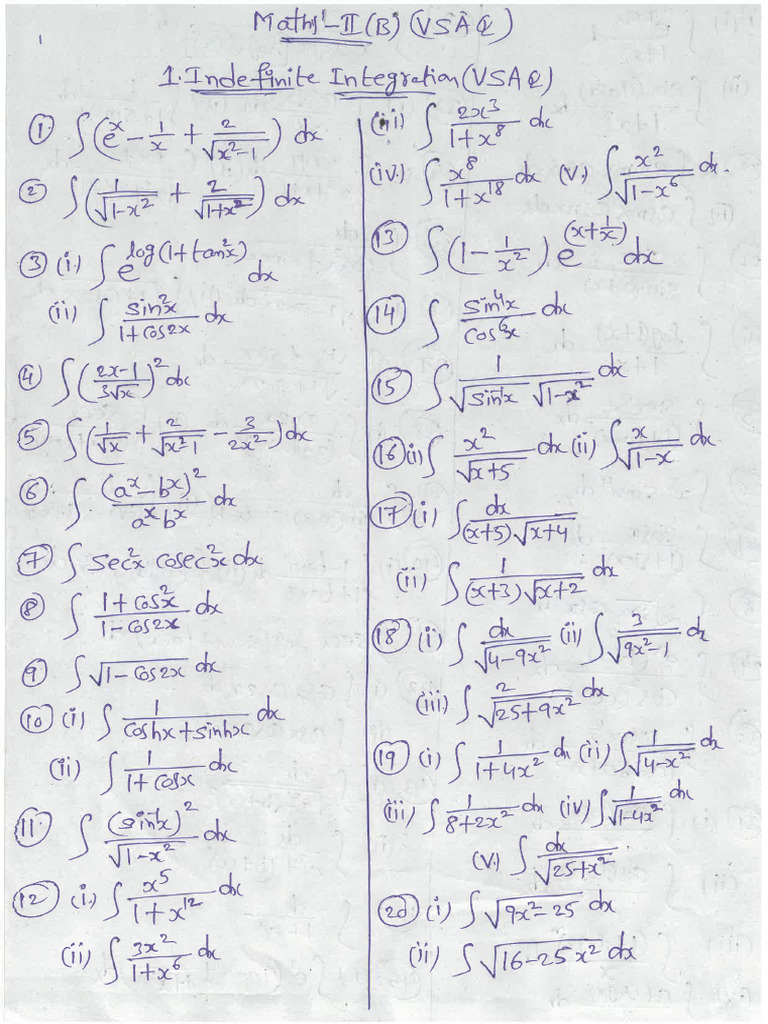 Maths-II(B) (VSAQ)
1. Indefinite Integration (VSAQ)
① ∫(eˣ − 1/x + 2/√(x²−1)) dx
② ∫(1/√(1−x²) + 2/√(1+x²)) dx
③ (i.) ∫ e^(log(1+tan²x)) dx
(ii) ∫ sin²x/(1+cos2x) dx
④ ∫((2x−1)/(3√x))² dx
⑤ ∫(1/√x + 2/√(x²−1) − 3/(2x²)) dx
⑥ ∫ (aˣ−bˣ)²/(aˣbˣ) dx
⑦ ∫ sec²x cosec²x dx
⑧ ∫ (1+cos²x)/(1−cos2x) dx
⑨ ∫√(1−cos2x) dx
⑩ (i) ∫ 1/(coshx+sinhx) dx
(ii) ∫ 1/(1+cosx) dx
⑪ ∫ (sin⁻¹x)²/√(1−x²) dx
⑫ (i.) ∫ x⁵/(1+x¹²) dx
(ii) ∫ 3x²/(1+x⁶) dx
(iii) ∫ 2x³/(1+x⁸) dx
(iv.) ∫ x⁸/(1+x¹⁸) dx (v.) ∫ x²/√(1−x⁶) dx.
⑬ ∫(1−1/x²) e^(x+1/x) dx
⑭ ∫ sin⁴x/cos⁶x dx
⑮ ∫ 1/(√(sin⁻¹x) √(1−x²)) dx
⑯ (i) ∫ x²/√(x+5) dx (ii) ∫ x/√(1−x) dx
⑰ (i) ∫ dx/((x+5)√(x+4))
(ii) ∫ 1/((x+3)√(x+2)) dx
⑱ (i) ∫ dx/√(4−9x²) (ii) ∫ 3/√(9x²−1) dx
(iii) ∫ 2/√(25+9x²) dx
⑲ (i) ∫ 1/(1+4x²) dx (ii) ∫ 1/√(4−x²) dx
(iii) ∫ 1/(8+2x²) dx (iv) ∫ 1/√(1−4x²) dx
(v.) ∫ dx/√(25+x²).
⑳ (i) ∫ √(9x²−25) dx
(ii) ∫ √(16−25x²) dx